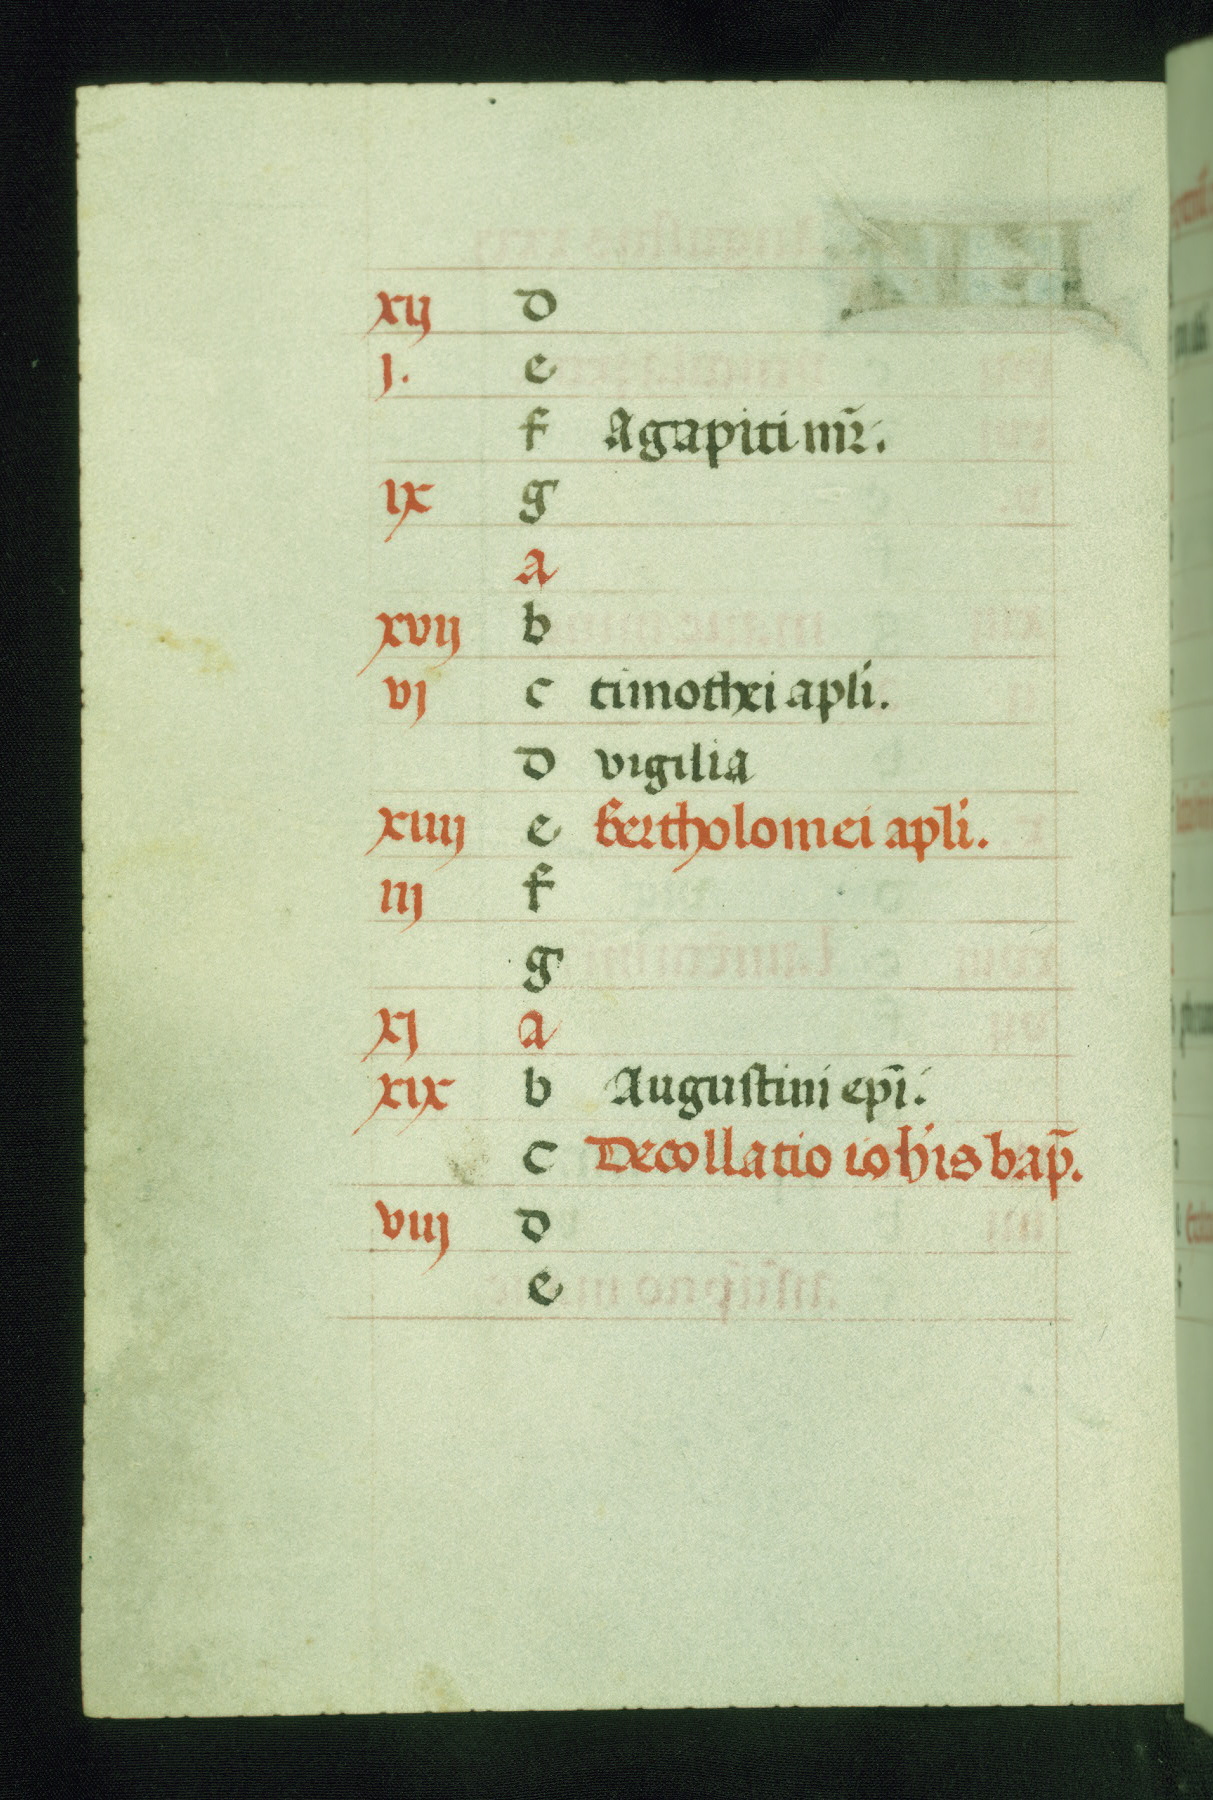 xij d
j. e
f Agapiti mr̄.
ix g
a
xvij b
vj c timothei apli̅.
d vigilia
xiiij e bertholomei apli̅.
iij f
g
xj a
xix b Augustini ep̄i.
c Decollatio ioh̄is bap̄.
viij d
e